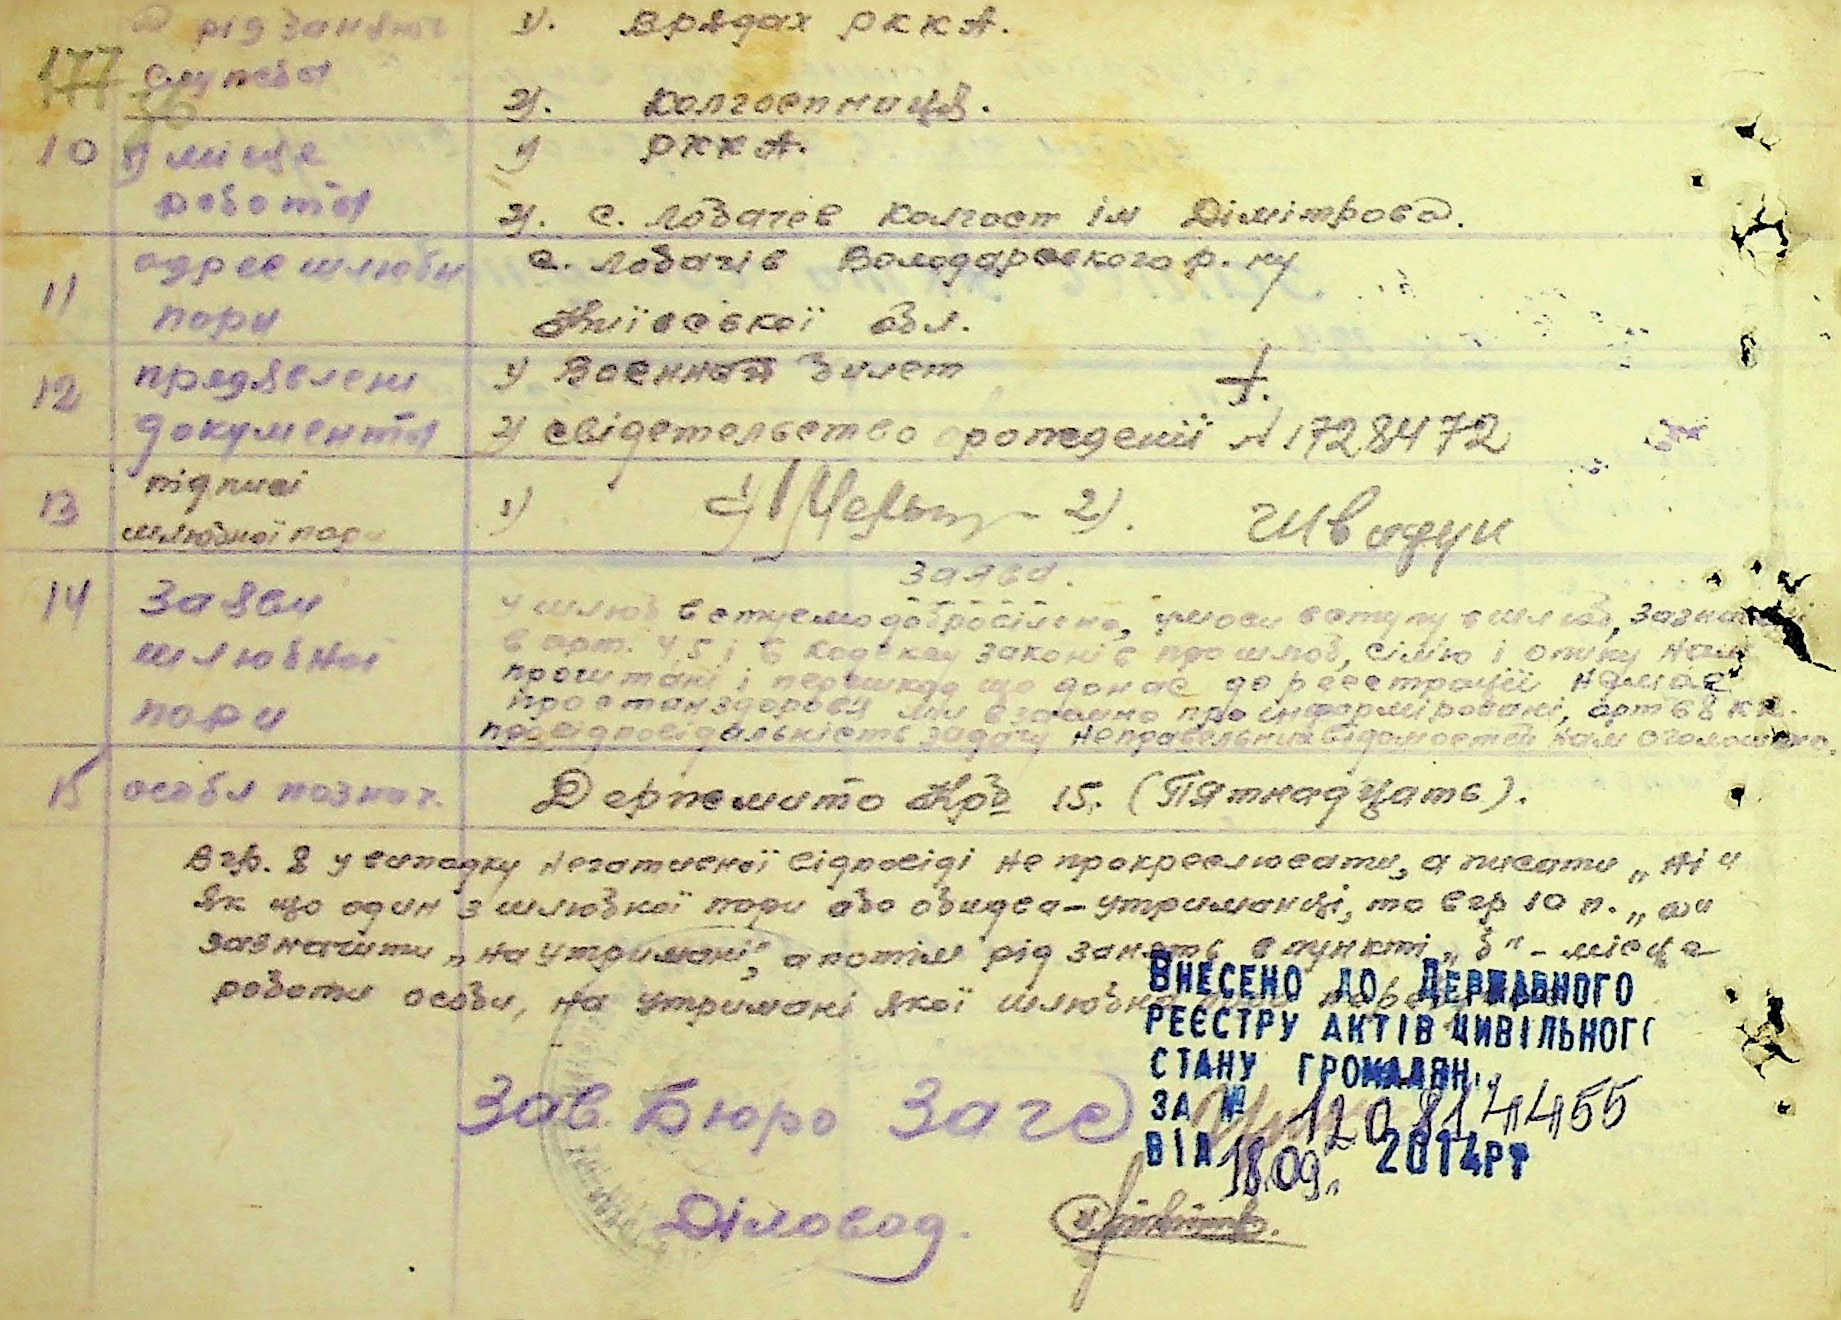 рід занять 1). В рядах РККА.
177 служба
2). колгоспниця.
10 1) місце 1) РККА.
роботи 2). с. Лобачев колгосп ім Дімітрова.
11 адрес шлюбн с. Лобачів Володарського р-ну
пари Київської обл.
12 предявлені 1) Воєнной билет
документи 2) свідетельство орождении N 1728472
13 підписі
шлюбної пари 1) 2).
14 Заяви Заява.
шлюбної У шлюб вступаємо добровільно, умови вступу в шлюб, зазначені
пари в арт. 4, 5 і 6 кодексу законів про шлюб, сімю і опіку нам
прочитані і перешкод що до нас до реєстрації немає
про стан здоровя ми взаємно проінформіровані, арт 68 КК.
про відповідальність задачу неправельних відомостей нам оголошено.
15 особл познач. Держмито Крб 15. (Пятнадцать).
В гр. 8 у випадку негативної відповіді не прокреслювати, а писати „ні“
Як що один з шлюбної пари або обидва - утриманці, то в гр 10 п. „а“
зазначити „на утримані“, а потім рід занять в пункті „б“ - місце
роботи особи, на утримані якої шлюбна
ВНЕСЕНО ДО ДЕРЖАВНОГО
РЕЄСТРУ АКТІВ ЦИВІЛЬНОГО
СТАНУ ГРОМАДЯН
Зав. Бюро Загс ЗА № 12081 4455
ВІД 18.09. 2014 Р
Діловод.